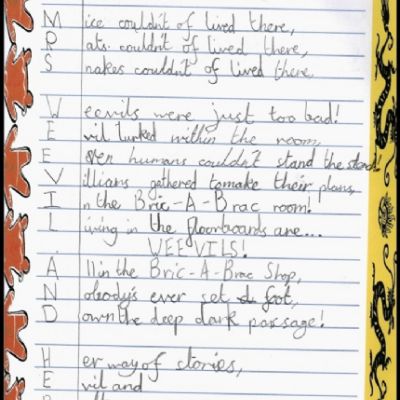 Mice couldn't of lived there,
Rats couldn't of lived there,
Snakes couldn't of lived there.
Weevils were just too bad!
Evil lurked within the room,
Even humans couldn't stand the
Villians gathered to make their plans,
In the Bric-A-Brac room!
Living in the floorboards are...
WEEVILS!
All in the Bric-A-Brac Shop,
Nobody's ever set foot,
Down the deep dark passage!
Her way of stories,
Evil and